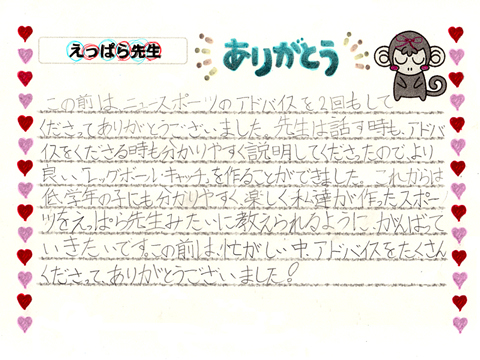 えっぱら先生
ありがとう
この前は、ニュースポーツのアドバイスを2回もして
くださってありがとうございました。先生は話す時も、アドバ
イスをくださる時も分かりやすく説明してくださったので、より
良い「エッグボール・キャッチ」を作ることができました。これからは
低学年の子にも分かりやすく、楽しく私達が作ったスポー
ツをえっぱら先生みたいに教えられるように、がんばって
いきたいです。この前は、忙がしい中、アドバイスをたくさん
くださって、ありがとうございました!